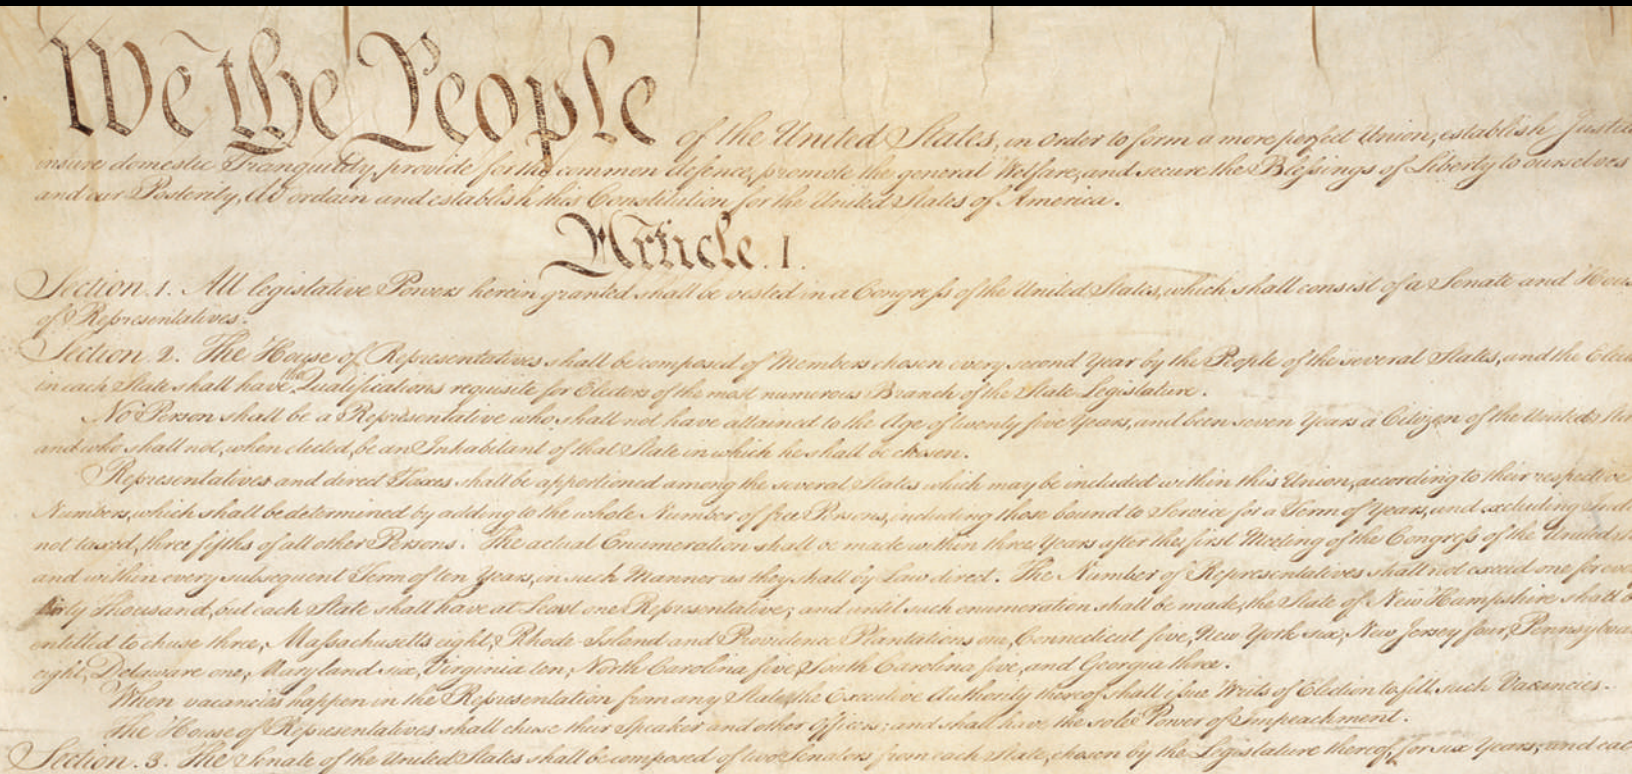 We the People of the United States, in Order to form a more perfect Union, establish Justic
insure domestic Tranquility, provide for the common defence, promote the general Welfare, and secure the Blessings of Liberty to ourselves
and our Posterity, do ordain and establish this Constitution for the United States of America.
Article. I.
Section. 1. All legislative Powers herein granted shall be vested in a Congress of the United States, which shall consist of a Senate and Hous
of Representatives.
Section. 2. The House of Representatives shall be composed of Members chosen every second Year by the People of the several States, and the Elec
in each State shall have the Qualifications requisite for Electors of the most numerous Branch of the State Legislature.
No Person shall be a Representative who shall not have attained to the Age of twenty five Years, and been seven Years a Citizen of the United Sta
and who shall not, when elected, be an Inhabitant of that State in which he shall be chosen.
Representatives and direct Taxes shall be apportioned among the several States which may be included within this Union, according to their respective
Numbers, which shall be determined by adding to the whole Number of free Persons, including those bound to Service for a Term of Years, and excluding Indi
not taxed, three fifths of all other Persons. The actual Enumeration shall be made within three Years after the first Meeting of the Congress of the United St
and within every subsequent Term of ten Years, in such Manner as they shall by Law direct. The Number of Representatives shall not exceed one for eve
thirty Thousand, but each State shall have at Least one Representative; and until such enumeration shall be made, the State of New Hampshire shall b
entitled to chuse three, Massachusetts eight, Rhode-Island and Providence Plantations one, Connecticut five, New-York six, New Jersey four, Pennsylvan
eight, Delaware one, Maryland six, Virginia ten, North Carolina five, South Carolina five, and Georgia three.
When vacancies happen in the Representation from any State, the Executive Authority thereof shall issue Writs of Election to fill such Vacancies.
The House of Representatives shall chuse their Speaker and other Officers; and shall have the sole Power of Impeachment.
Section. 3. The Senate of the United States shall be composed of two Senators from each State, chosen by the Legislature thereof, for six Years; and eac